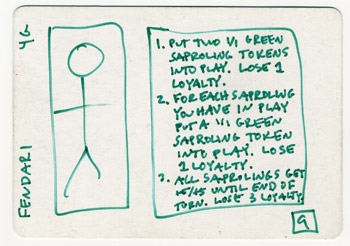 4G
FENDARI
1. PUT TWO 1/1 GREEN
SAPROLING TOKENS
INTO PLAY. LOSE 1
LOYALTY.
2. FOR EACH SAPROLING
YOU HAVE IN PLAY
PUT A 1/1 GREEN
SAPROLING TOKEN
INTO PLAY. LOSE
2 LOYALTY.
3. ALL SAPROLINGS GET
UNTIL END OF
TURN. LOSE 3 LOYALTY
9